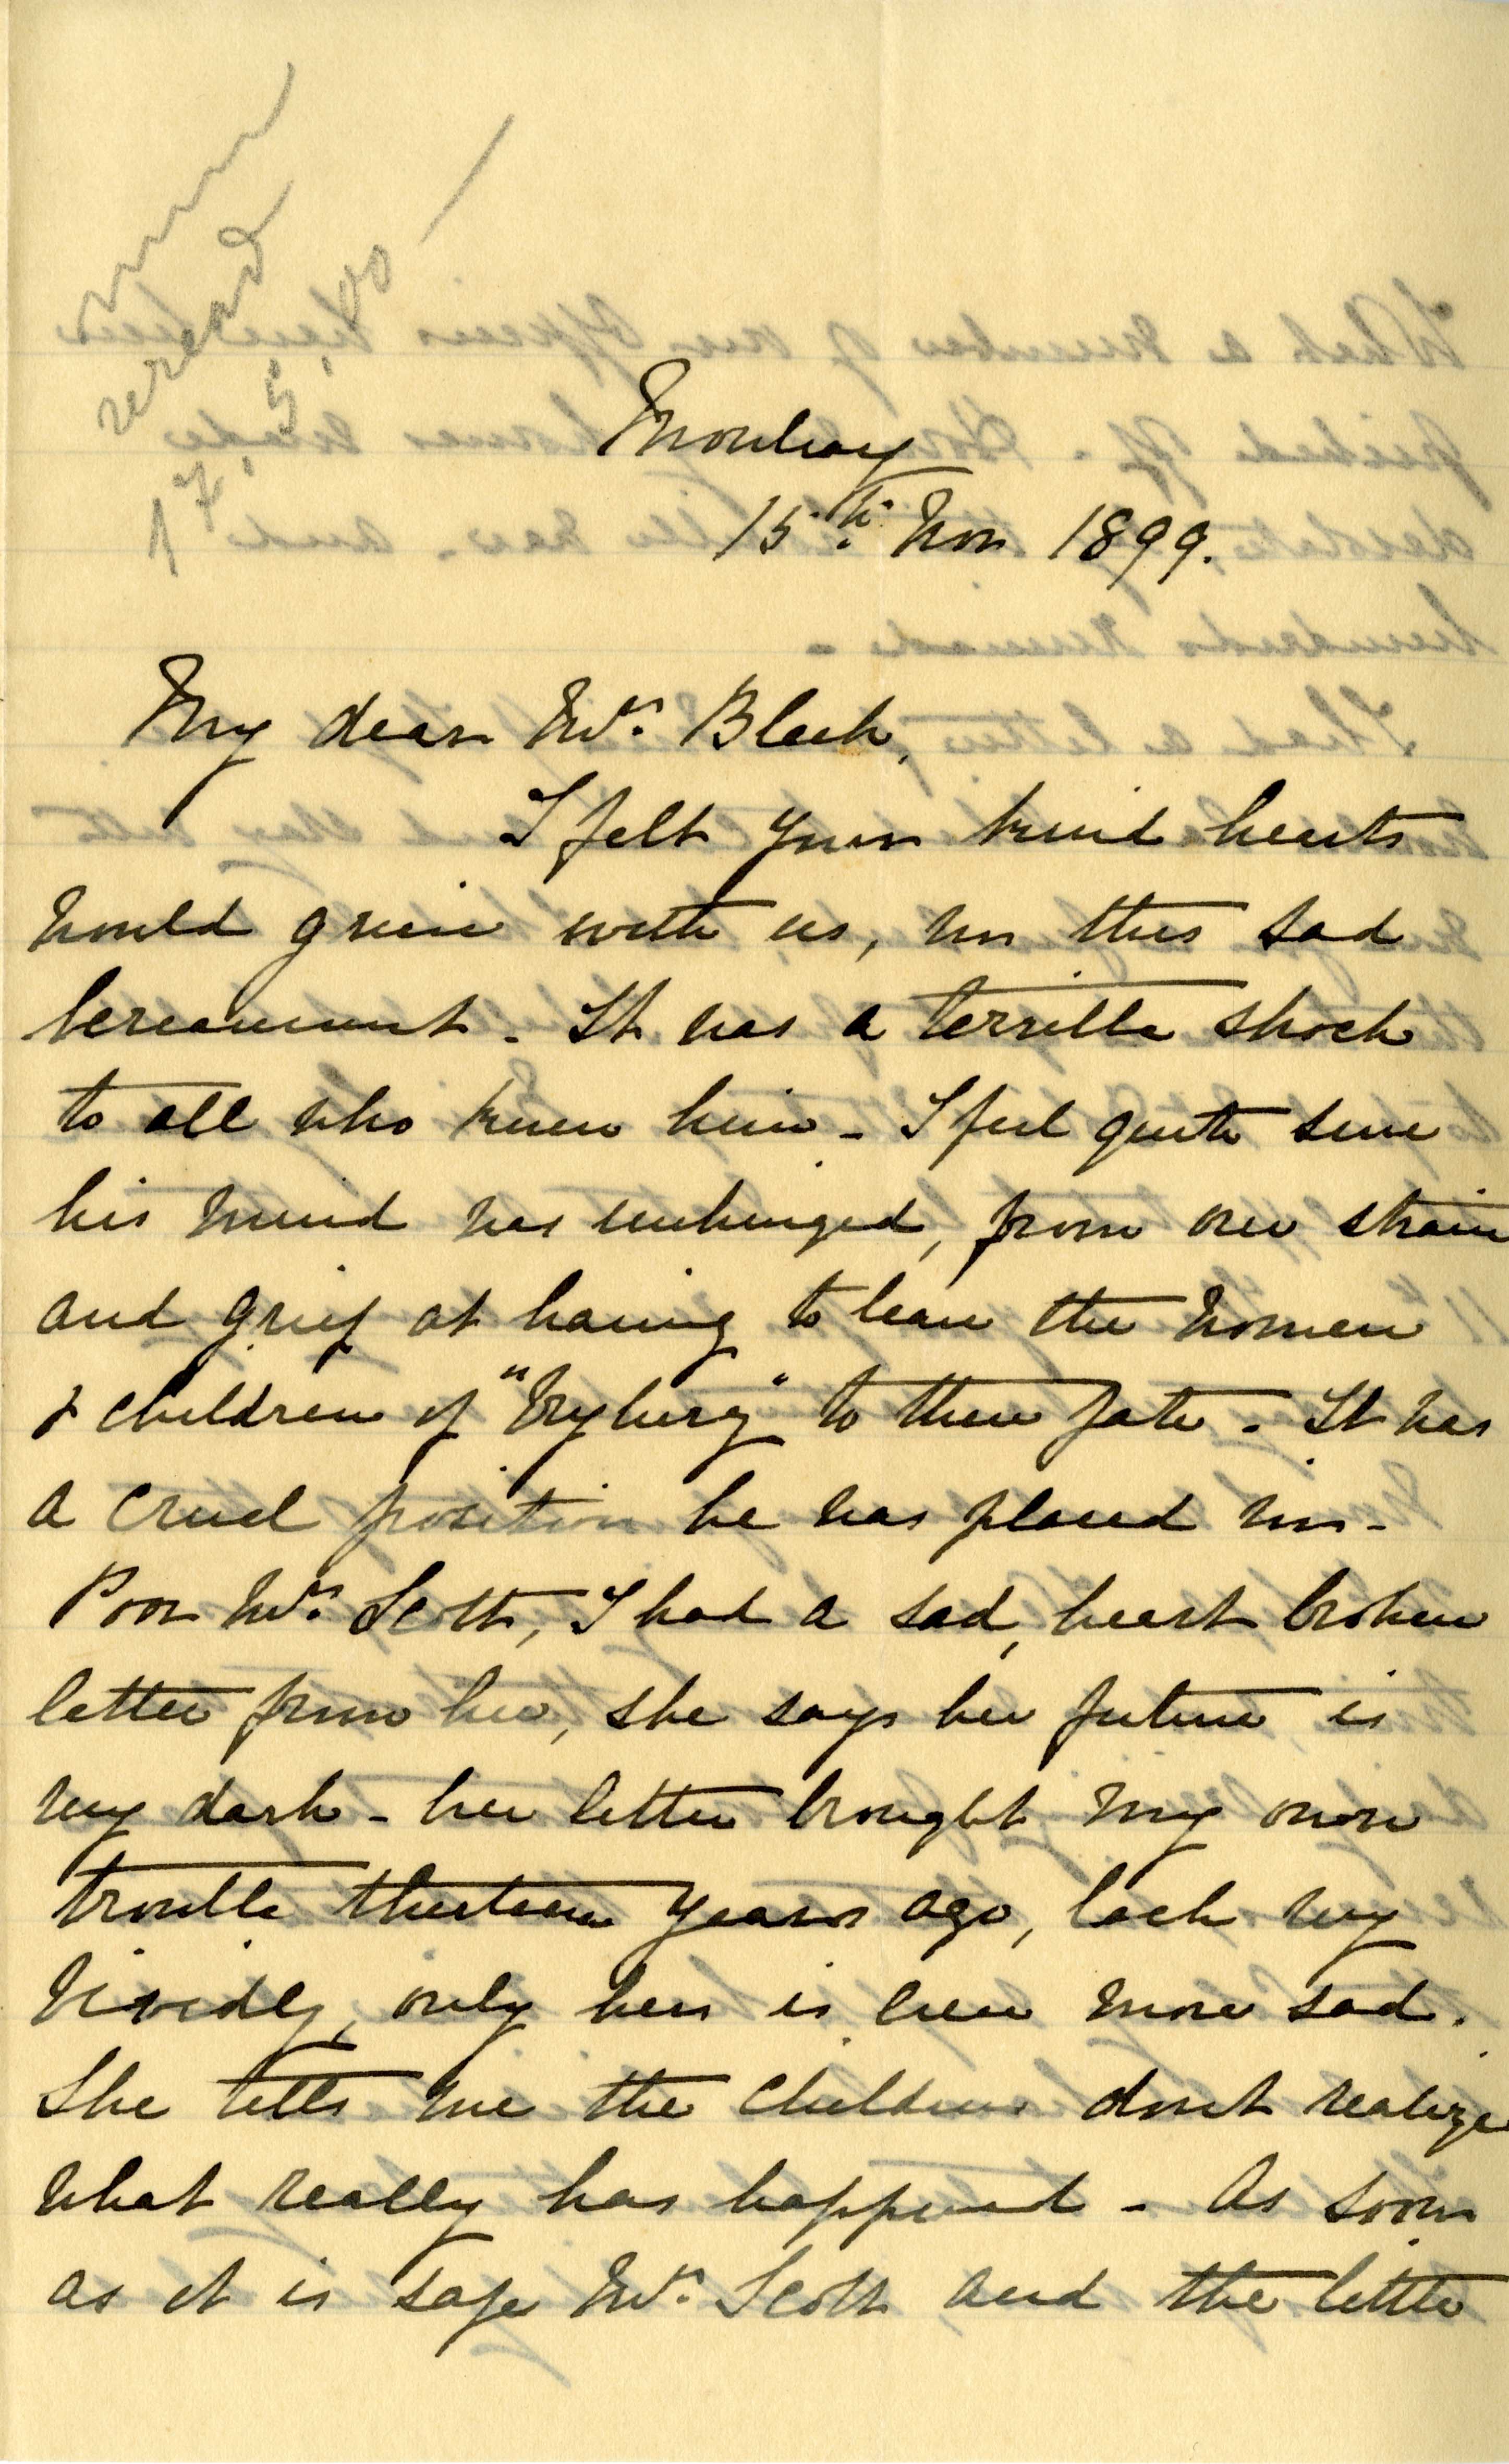 received
17.5.00
Mowbray
15th Nov 1899.
My dear Mrs. Bleek,
I felt your kind hearts
would grieve with us, in this sad
bereavment. It was a terrible shock
to all who knew him - I feel quite sure
his mind was unhinged, from over strain
and grief at having to leave the women
& children of "Vryburg" to their fate. It was
a cruel position he was placed in -
Poor Mrs. Scott, I had a sad, heart broken
letter from her, she says her future is
very dark - her letter brought my own
trouble thirteen years ago, back very
vividly, only hers is even more sad.
She tells me the children dont realize
what really has happened - As soon
as it is safe Mrs. Scott and the little